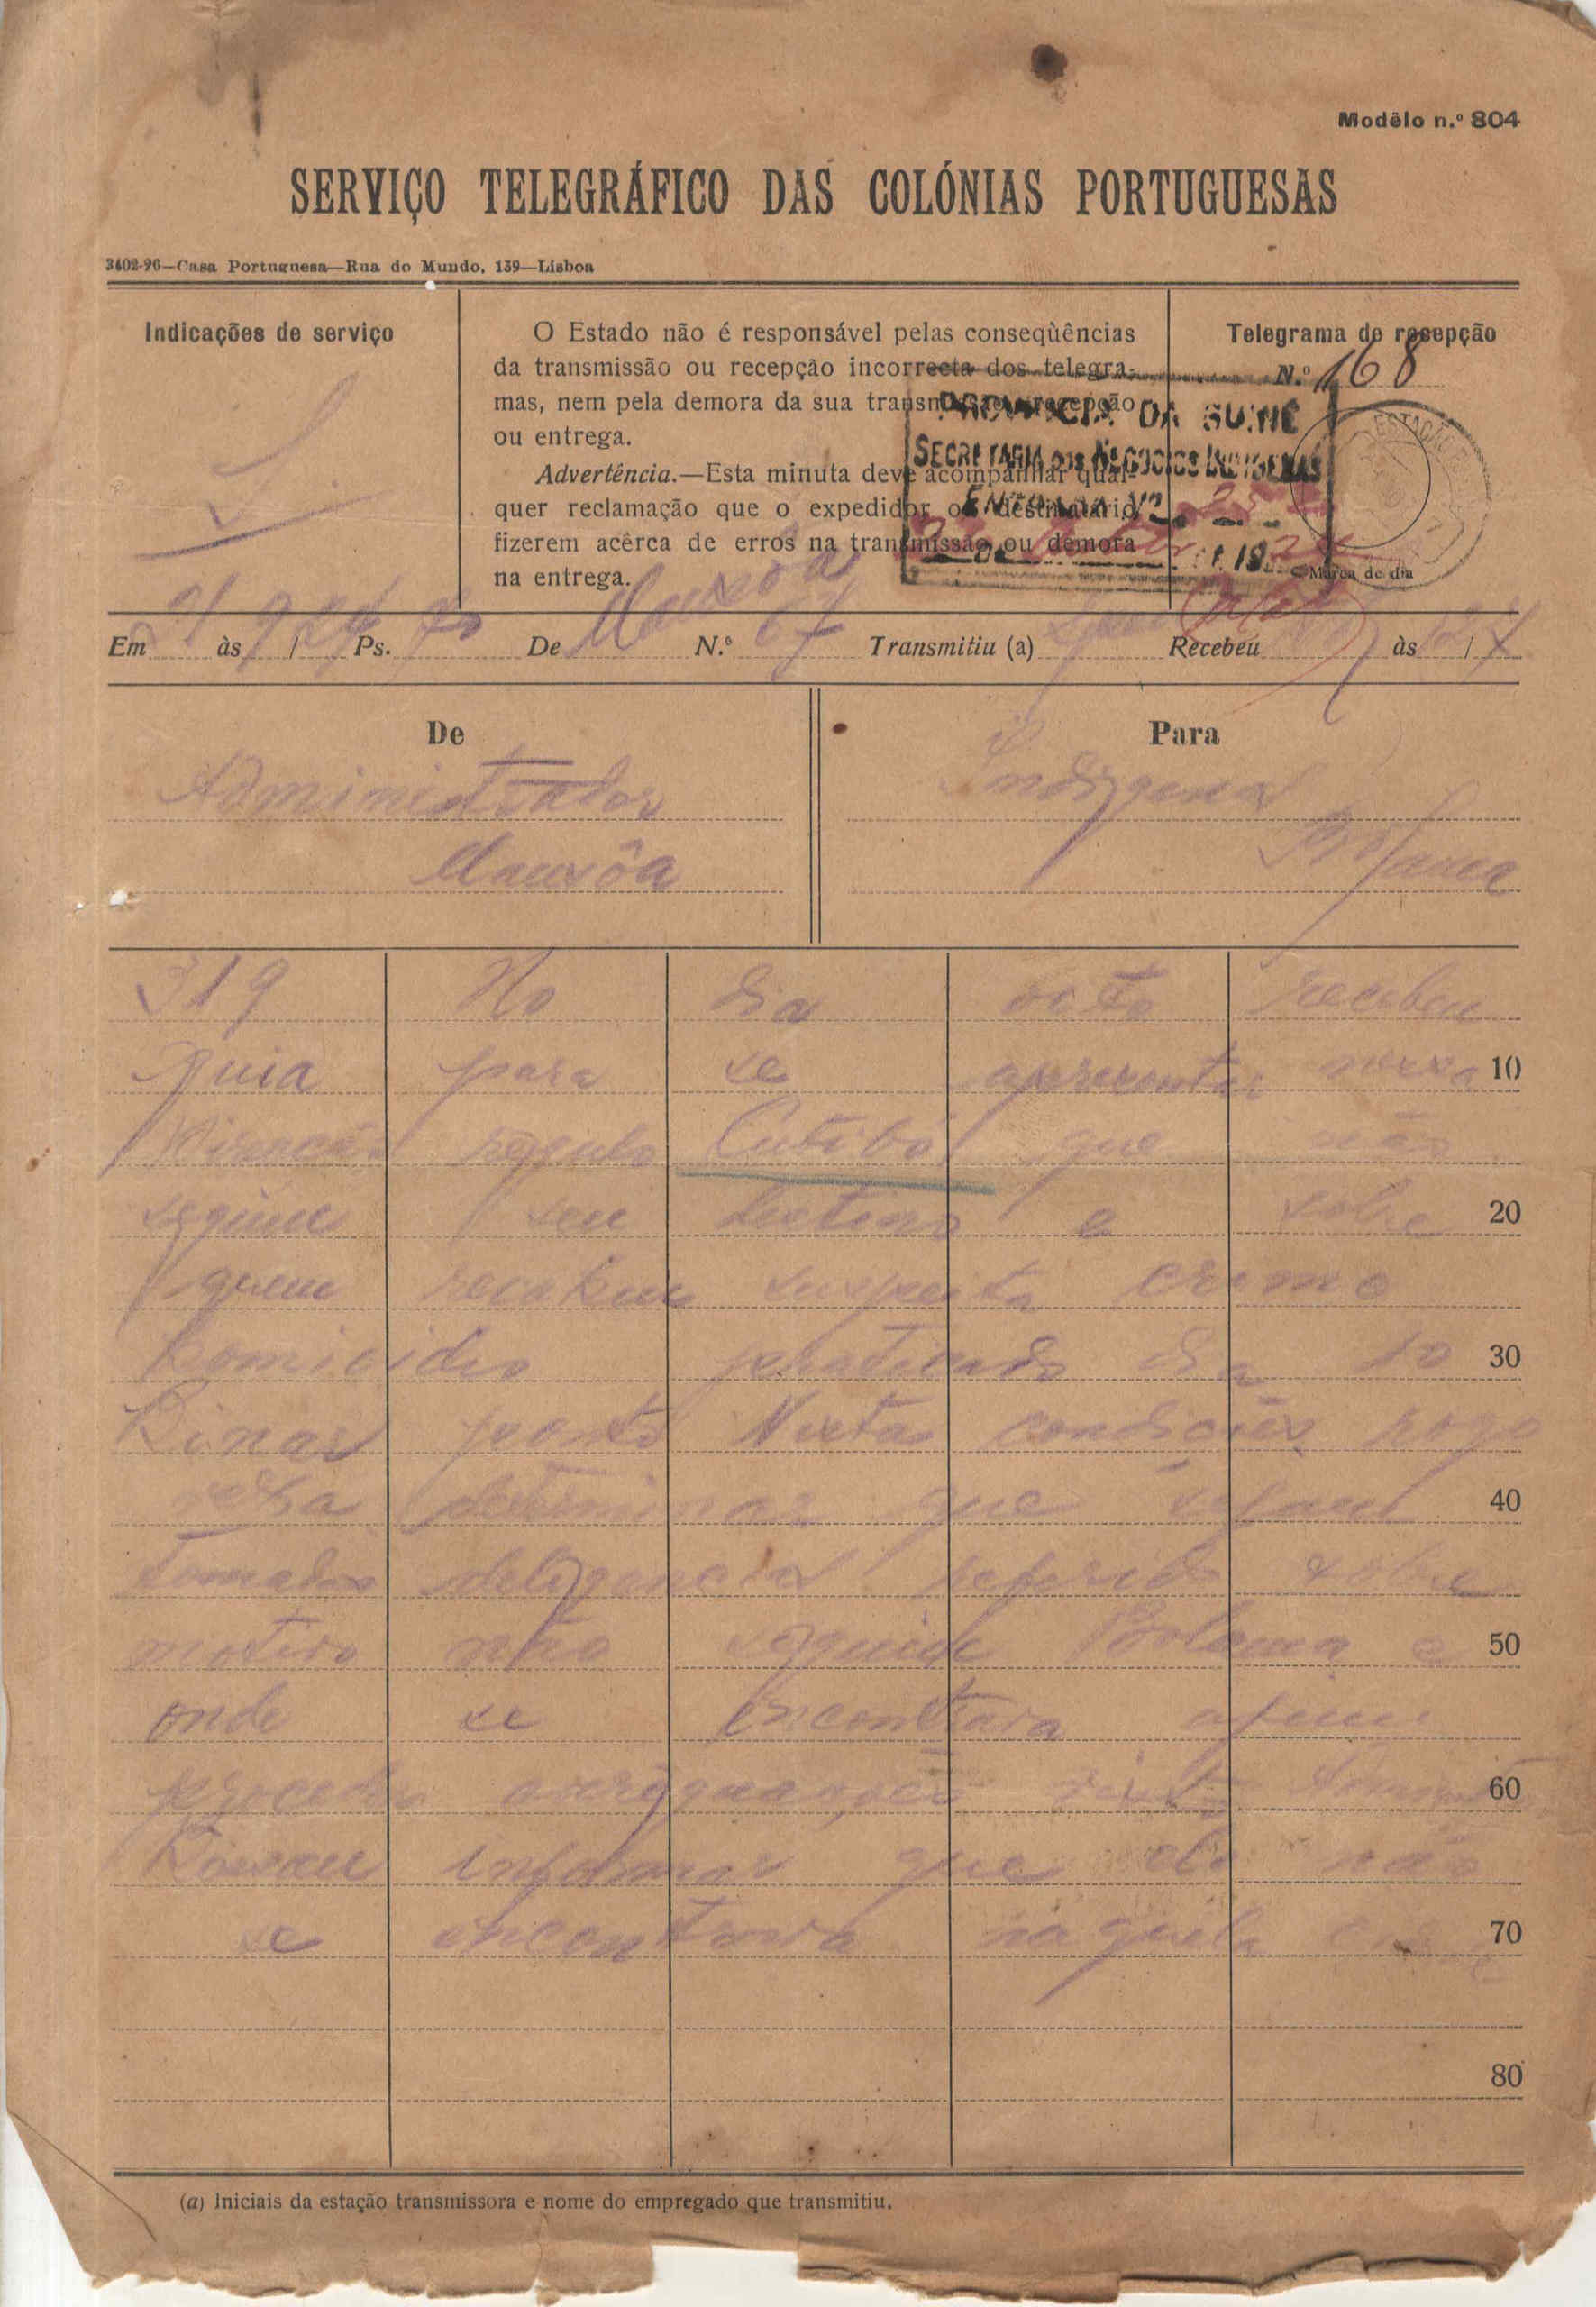 Modêlo n.º 804
SERVIÇO TELEGRÁFICO DAS COLÓNIAS PORTUGUESAS
3402-96—Casa Portuguesa—Rua do Mundo, 139—Lisboa
Indicações de serviço
O Estado não é responsável pelas conseqùências
da transmissão ou recepção incorrecta dos telegra-
mas, nem pela demora da sua transmissão, recepção
ou entrega.
Advertência.—Esta minuta deve acompanhar qual-
quer reclamação que o expedidor ou destinatário
fizerem acêrca de erros na transmissão ou demora
na entrega.
Telegrama de recepção
N.º 168
PROVINCIA DA GUINÉ
SECRETARIA DOS NEGOCIOS INDIGENAS
ENTRADA N.º
Marca de dia
Em às / Ps. De Mansôa N.º 67 Transmitiu (a) Recebeu às /
De
Administrador
Mansôa
Para
Indigenas
Bolama
319 No dia oito recebeu
guia para se apresentar nessa 10
Direcção regulo Cutibo que não
seguiu seu destino e sobre 20
quem recahem suspeita crime
homicidio praticado dia 10 30
Binar ponto Nestas condições rogo
determinar que sejam 40
tomadas deligencias referido sobre
motivo não seguir Bolama e 50
onde se encontrava afim
proceder averiguações visto 60
Bissau informar que ele não
se encontrava naquela 70
80
(a) Iniciais da estação transmissora e nome do empregado que transmitiu.